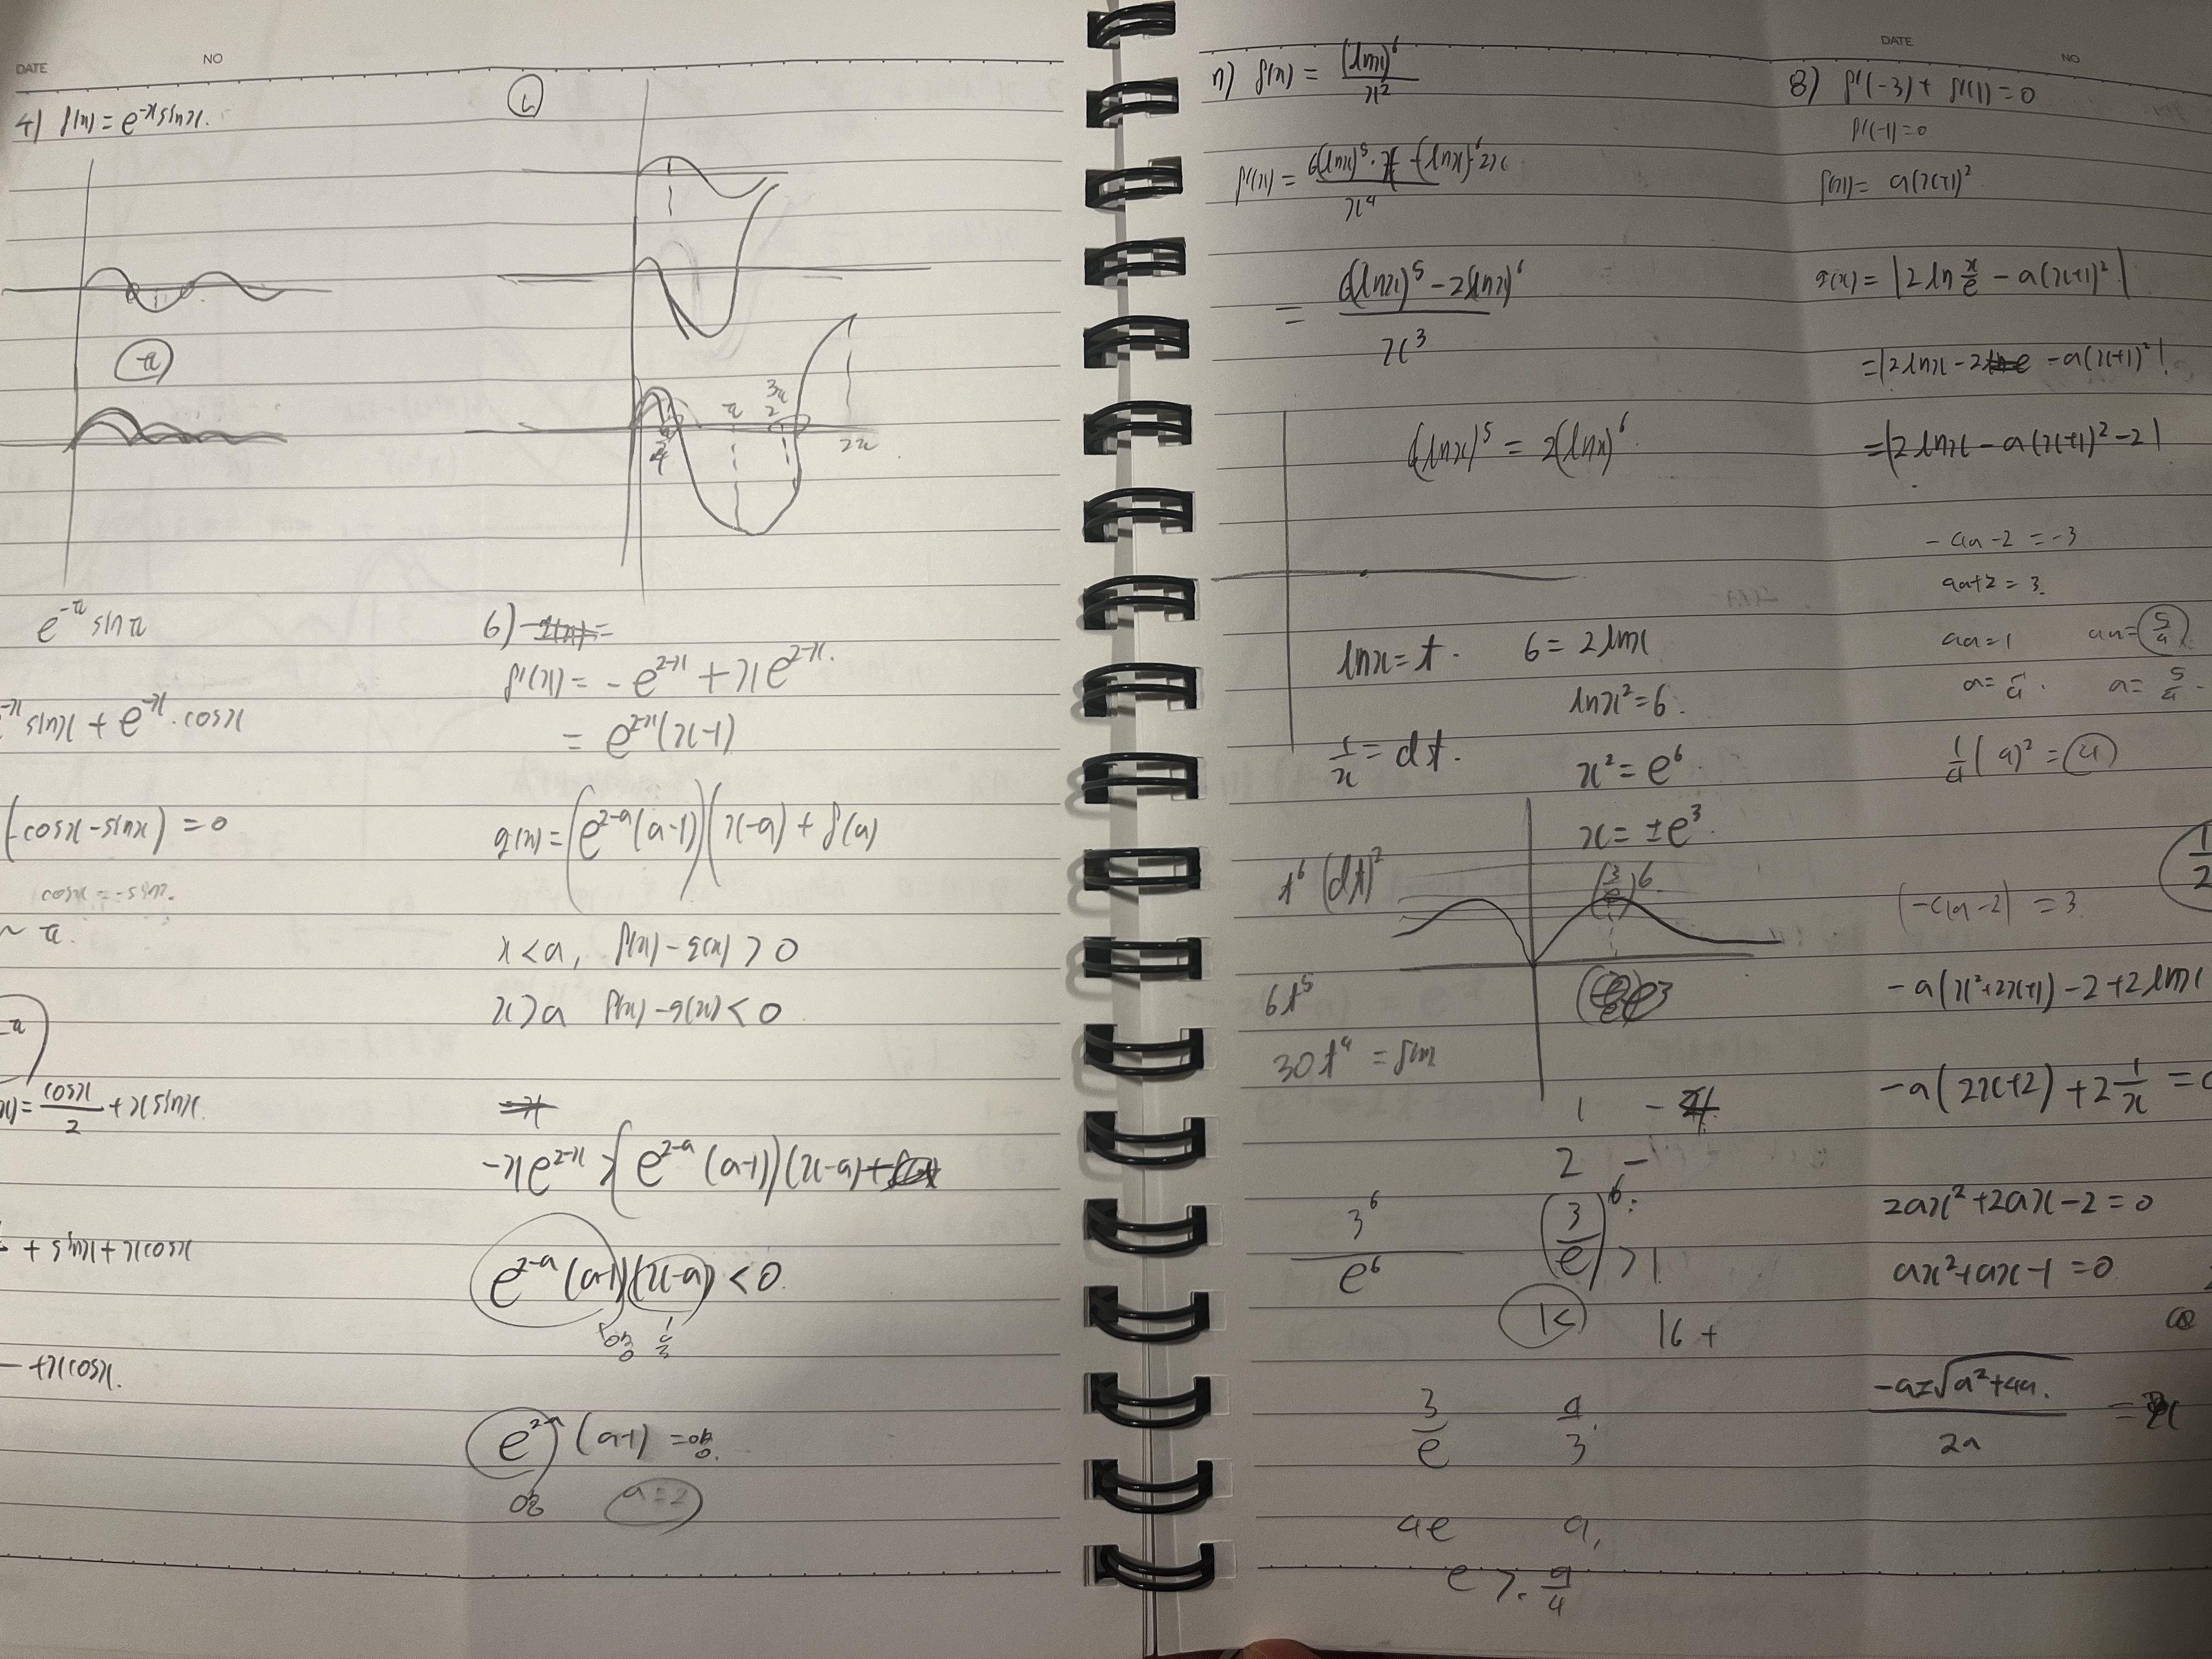 DATE
NO
4) f(x) = e^-x sinx.
-π
e^-π sinπ
^-x sinx + e^-x · cosx
(-cosx-sinx) = 0
cosx = -sinx.
~ π.
-π
x) = cosx/2 + xsinx.
+ sinx + xcosx
- +xcosx.
ㄴ
π/4
π
3π/2
2π
6)
f'(x) = - e^2-x + xe^2-x.
= e^2-x (x-1)
g(x) = (e^2-a (a-1))(x-a) + f(a)
x<a, f(x) - g(x) > 0
x>a f(x) - g(x) < 0
-xe^2-x > (e^2-a (a-1))(x-a)
e^2-a (a-1)(x-a) < 0.
양
음
e^2-a (a-1) = 양.
양
a=2
7) f(x) = (lnx)^6 / x^2
f'(x) = 6(lnx)^5 · x - (lnx)^6 · 2x / x^4
= 6(lnx)^5 - 2(lnx)^6 / x^3
6(lnx)^5 = 2(lnx)^6.
lnx = t. 6 = 2lnx
lnx^2 = 6.
1/x = dt. x^2 = e^6.
x = ±e^3.
t^6 (dt)^2
(3/e)^6.
e^3
6t^5
30t^4 = f(x)
1 -
2 -
3^6 / e^6
(3/e)^6 > 1.
1<
16 +
3/e 4/3
4e 9,
e >. 9/4
DATE
NO
8) f'(-3) + f'(1) = 0
f'(-1) = 0
f(x) = a(x+1)^2
g(x) = |2 ln x/e - a(x+1)^2|
= |2lnx - 2 - a(x+1)^2|
= |2lnx - a(x+1)^2 - 2|
-4a-2 = -3
4a+2 = 3.
4a=1 4a=5/4
a=1/4. a=5/4.
1/4 (4)^2 = 4
1/2
|-4a-2| = 3
-a(x^2+2x+1) - 2 + 2lnx
-a(2x+2) + 2 1/x = 0
2ax^2+2ax-2 = 0
ax^2+ax-1 = 0
-a±√a^2+4a. / 2a = x